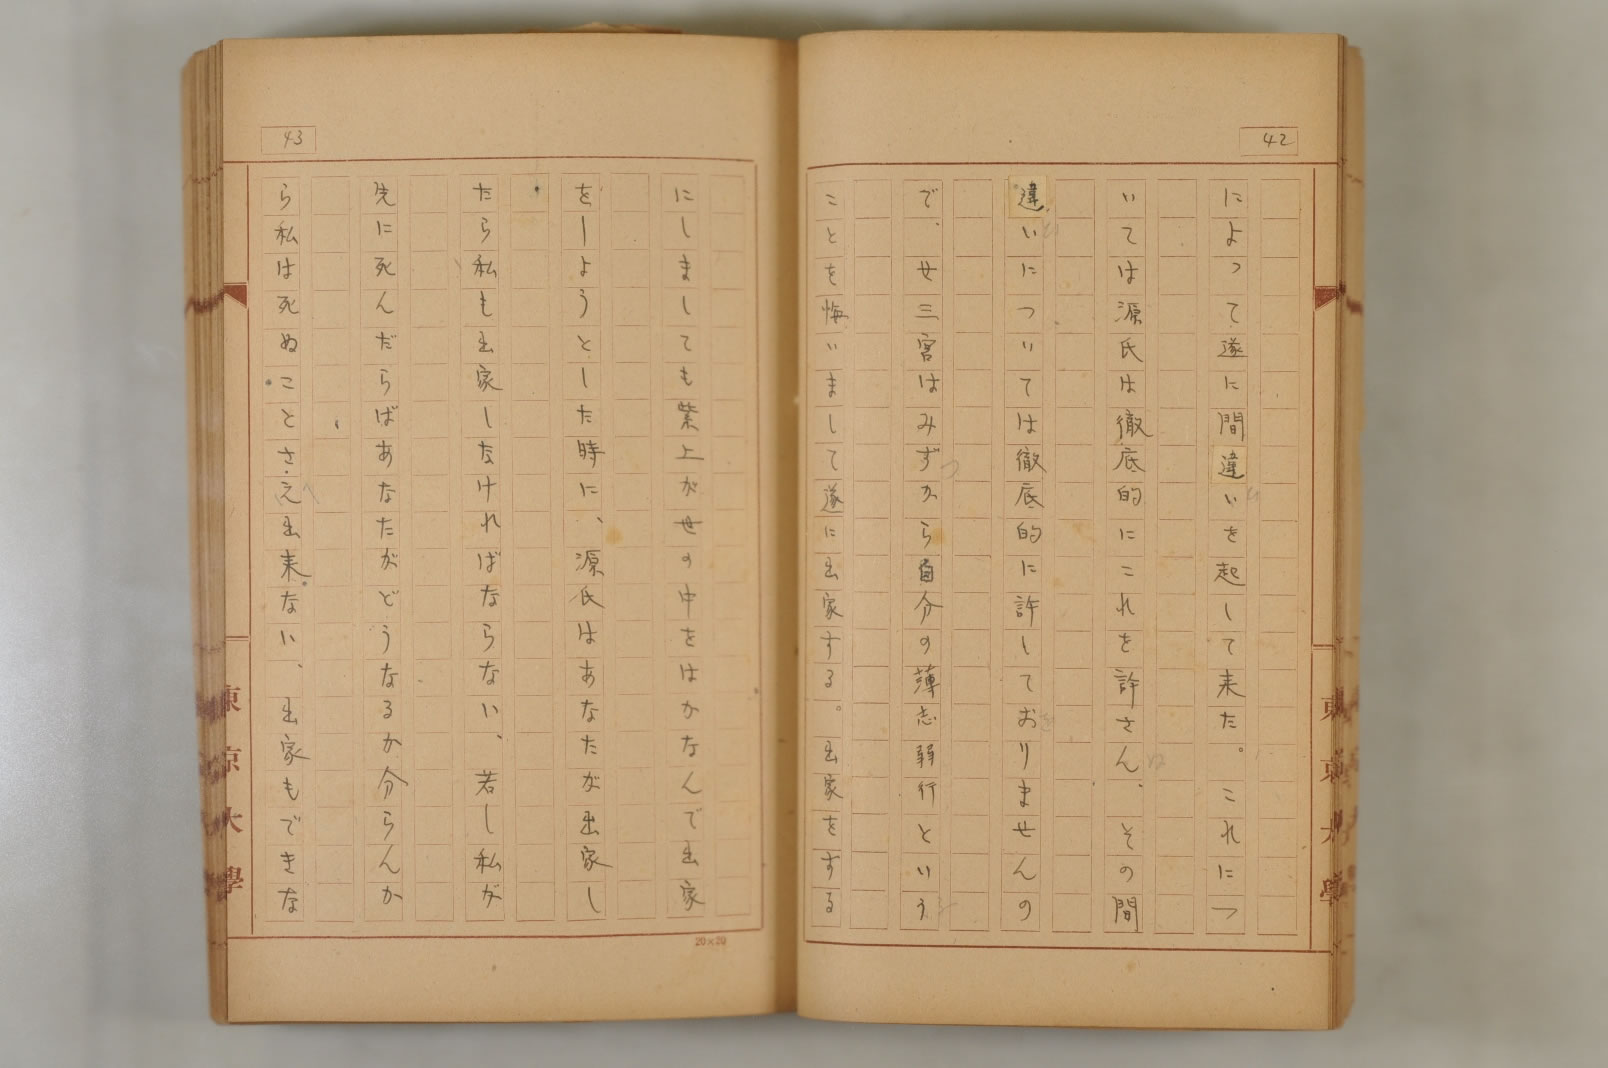 42
によって遂に間違いを起して来た。これにつ
いては源氏は徹底的にこれを許さん、その間
違いについては徹底的に許しておりませんの
で、女三宮はみずから自分の薄志弱行という
ことを悔いまして遂に出家する。出家をする
東京大學
43
にしましても紫上が世の中をはかなんで出家
をしようとした時に、源氏はあなたが出家し
たら私も出家しなければならない、若し私が
先に死んだらばあなたがどうなるか分らんか
ら私は死ぬことさえ出来ない、出家もできな
20×20
東京大學